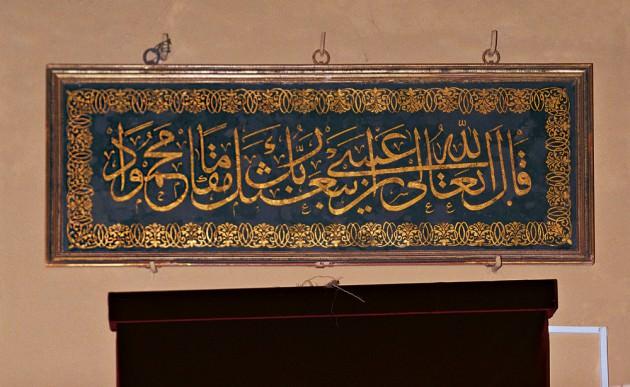 قال الله تعالى عسى أن يبعثك ربك مقاما محمودا